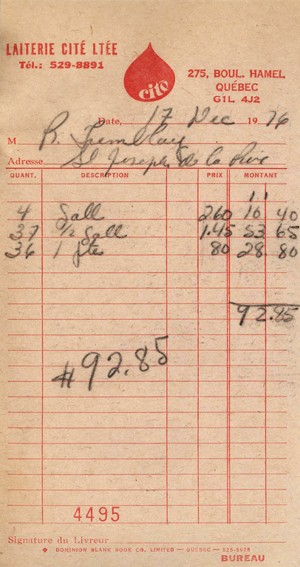 LAITERIE CITÉ LTÉE
Tél.: 529-8891
cité
275, BOUL. HAMEL
QUÉBEC
G1L 4J2
Date, 17 Dec 1976
M R. Tremblay
Adresse St Joseph de la Rive
QUANT. DESCRIPTION PRIX MONTANT
11
4 Gall 260 10 40
37 1/2 Gall 1.45 53 65
36 1 Pte 80 28 80
92.85
#92.85
4495
Signature du Livreur
DOMINION BLANK BOOK CO. LIMITED — QUEBEC —
BUREAU